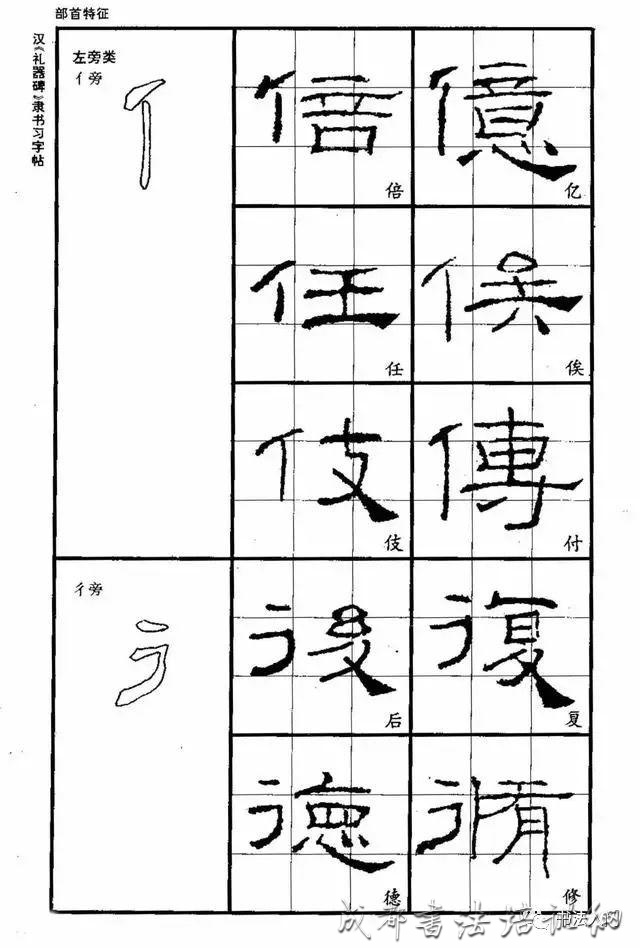 部首特征
汉《礼器碑》隶书习字帖
左旁类
亻旁
倍 億
倍 亿
任 俟
任 俟
伎 傳
伎 付
彳旁
後 復
后 复
德 脩
德 修
成都書法培
书法 网